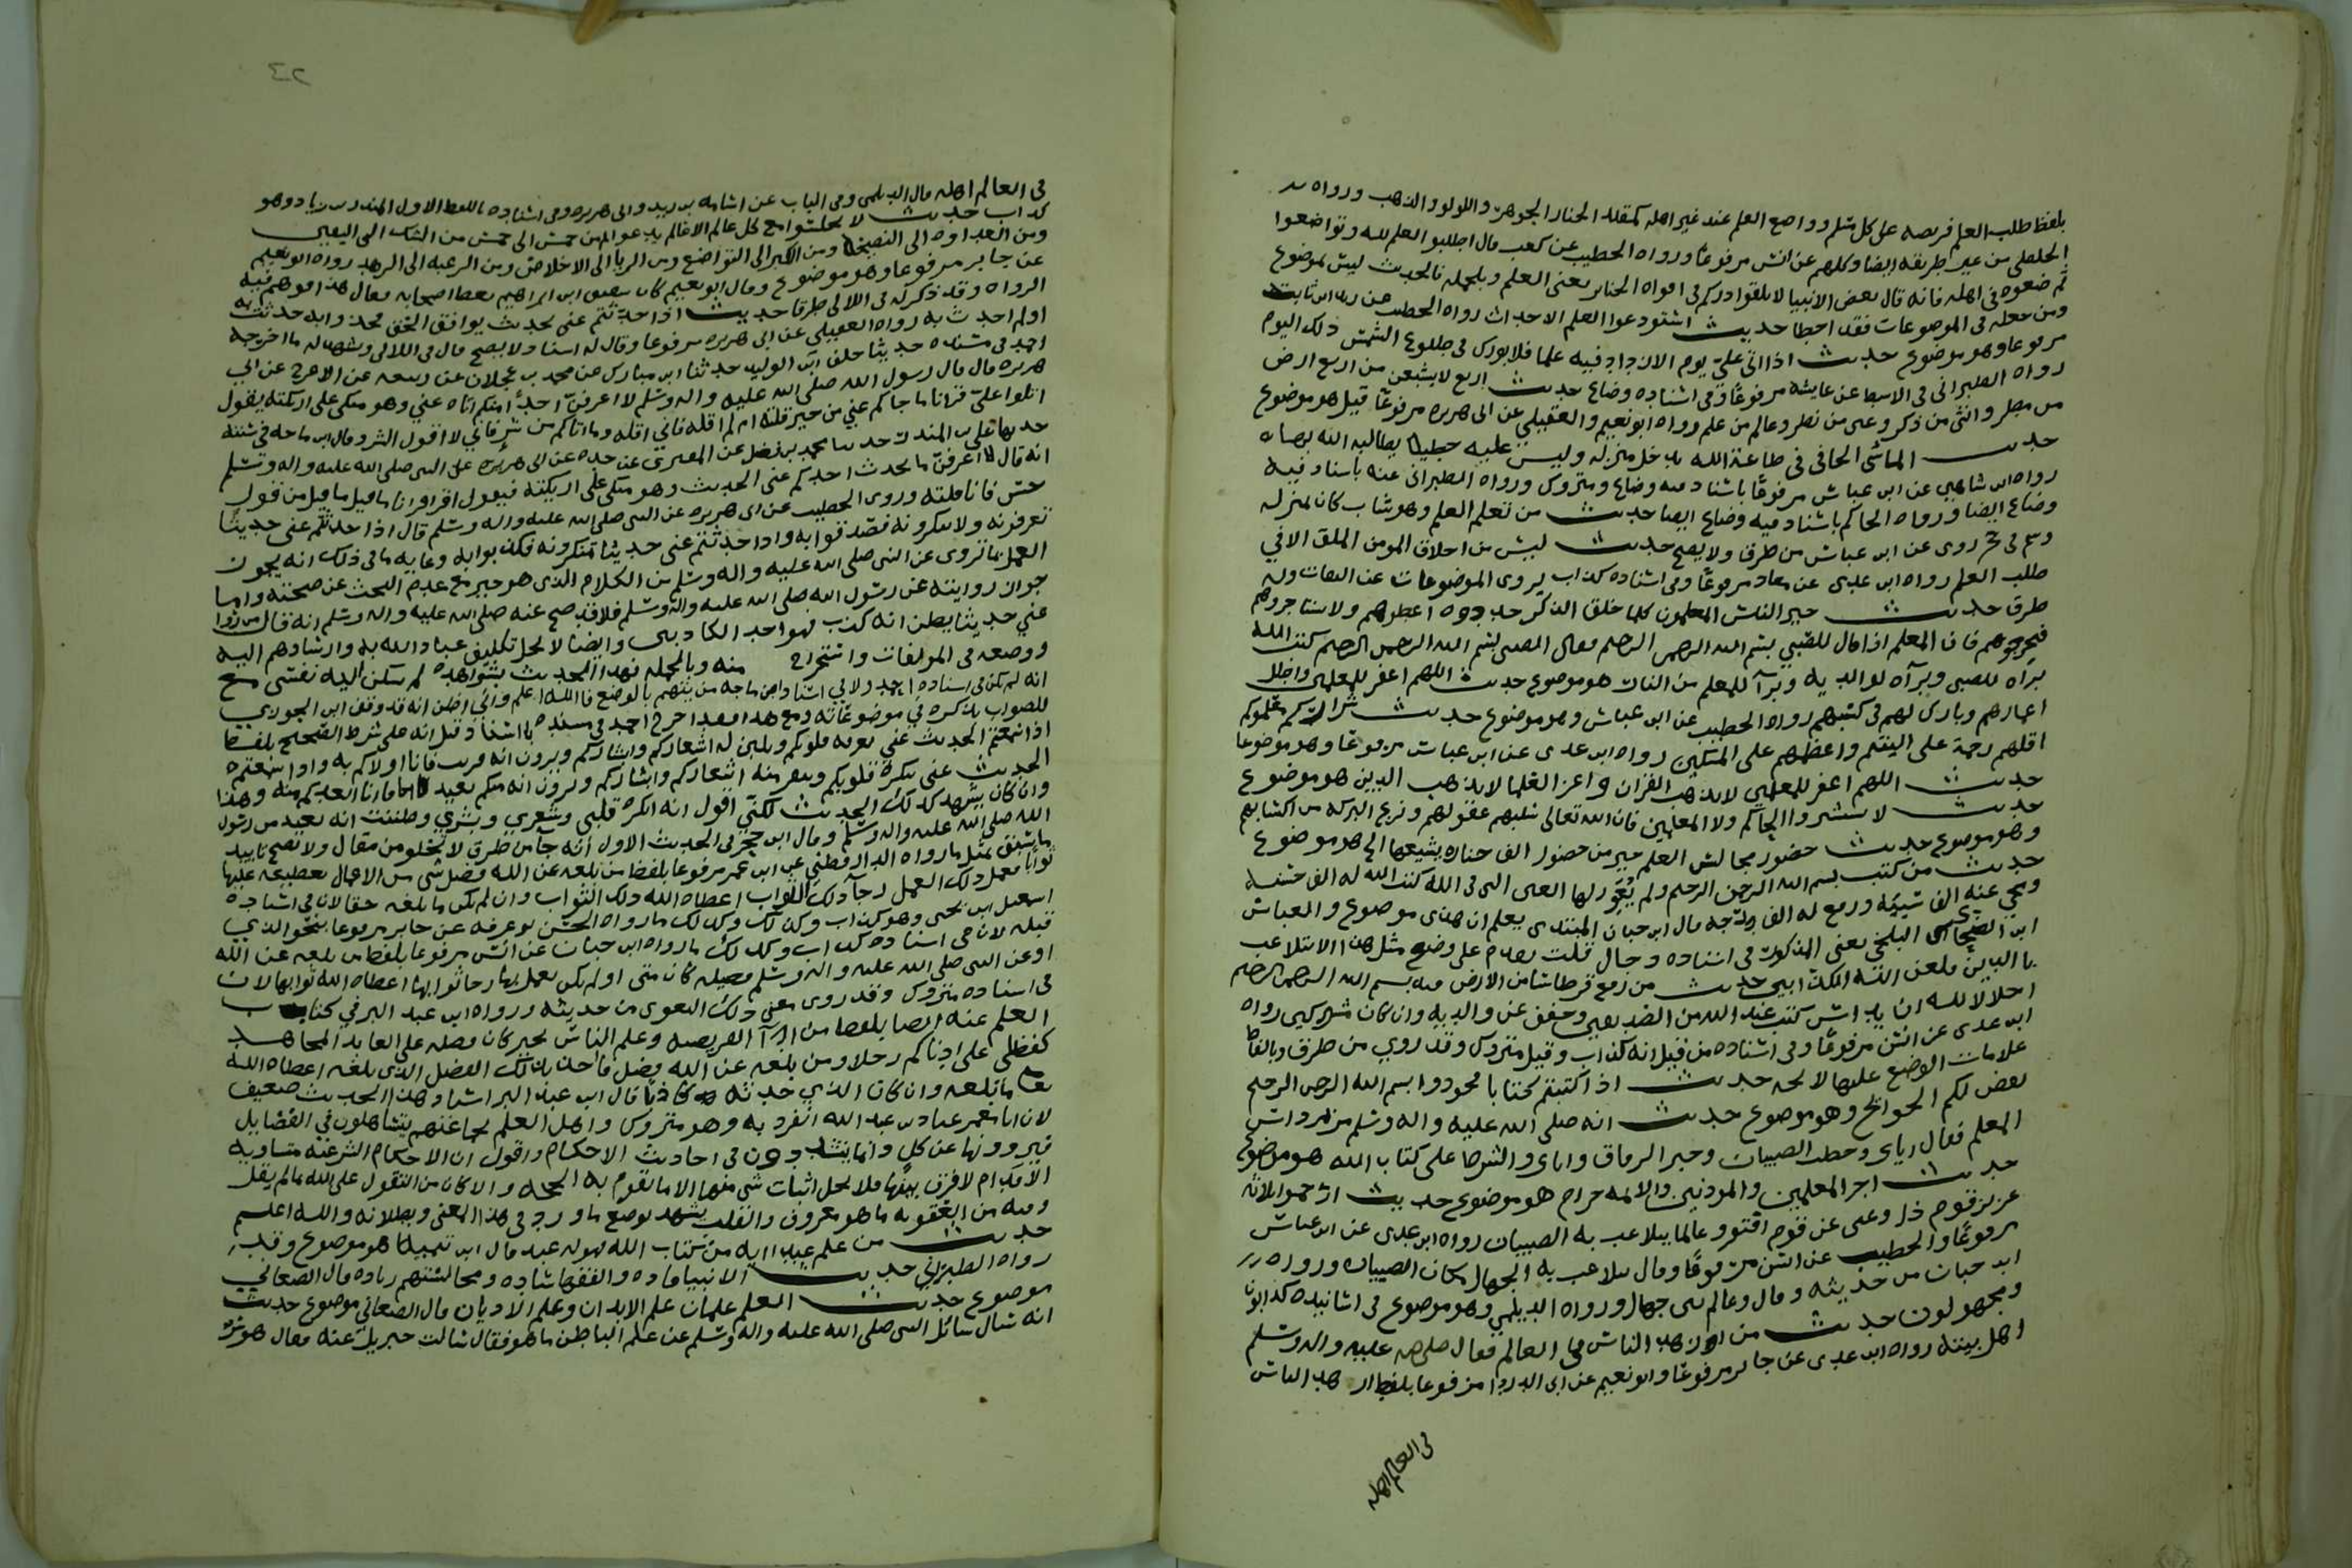 بلفظ طلب العلم فريضه على كل مسلم وواضع العلم عند غير اهله كمقلد الخنازير الجوهر واللولو والذهب ورواه
من غير طريقه ايضا وكلهم عن انس مرفوعا ورواه الخطيب عن كعب قال اطلبو العلم لله وتواضعوا
ثم ضعوه فى اهله فانه قال بعض الانبيا لا تلقوا دركم فى افواه الخنازير يعنى العلم وبالجمله فالحديث ليس بموضوع
ومن جعله فى الموضوعات فقد اخطا حديث استودعوا العلم الاحداث رواه الخطيب عن ابن ثابت
مرفوعا وهو موضوع حديث اذا اتى علي يوم لا ازداد فيه علما فلا بورك فى طلوع الشمس ذلك اليوم
رواه الطبرانى فى الاوسط عن عايشه مرفوعا وفى اسناده وضاع حديث اربع لا يشبعن من اربع ارض
من مطر وانثى من ذكر وعين من نظر وعالم من علم رواه ابو نعيم والعقيلي عن ابى هريره مرفوعا قيل هو موضوع
حديث الماشى الحافى فى طاعة الله يدخل منزله وليس عليه خطيه يطالبه الله بها
رواه ابن شاهين عن ابن عباس مرفوعا باسناد فيه وضاع ومتروك ورواه الطبرانى عنه باسناد فيه
وضاع ايضا ورواه الحاكم باسناد فيه وضاع ايضا حديث من تعلم العلم وهو شاب كان بمنزله
وسم فى حجر روى عن ابن عباس من طرق ولا يصح حديث ليس من اخلاق المومن الملق الا في
طلب العلم رواه ابن عدى عن معاذ مرفوعا وفى اسناده كذاب يروى الموضوعات عن الثقات وله
طرق حديث خير الناس المعلمون كلما خلق الذكر جددوه اعطوهم ولا تستاجروهم
فتحرجوهم فان المعلم اذا قال للصبي بسم الله الرحمن الرحيم فقال الصبى بسم الله الرحمن الرحيم كتب الله
براه للصبى وبرآه لوالديه وبرآ للمعلم من النار هو موضوع حديث اللهم اغفر للمعلمين واطل
اعمارهم وبارك لهم فى كسبهم رواه الخطيب عن ابن عباس وهو موضوع حديث شراركم معلموكم
اقلهم رحمة على اليتيم واغلظهم على المسكين رواه ابن عدى عن ابن عباس مرفوعا وهو موضوع
حديث اللهم اغفر للمعلمين لا يذهب القران واعز العلما لا يذهب الدين هو موضوع
حديث لا تستشيروا الحاكه ولا المعلمين فان الله تعالى سلبهم عقولهم ونزع البركه من اكسابهم
وهو موضوع حديث حضور مجالس العلم خير من حضور الف جنازه يشيعها الخ هو موضوع
حديث من كتب بسم الله الرحمن الرحيم ولم يعور لها العين التى فى الله كتب الله له الف حسنه
ومحى عنه الف سيئه ورفع له الف درجه قال ابن حبان المبتدى يعلم ان هذى موضوع والعباس
ابن الضحاك البلخي يعنى المذكور فى اسناده دجال قلت يقدم على وضع مثل هذا الا متلاعب
بالدين فلعن الله الكذابين حديث من رفع قرطاسا من الارض فيه بسم الله الرحمن الرحيم
اجلالا لله ان يداس كتب عند الله من الصديقين وخفف عن والديه وان كان مشركين رواه
ابن عدى عن انس مرفوعا وفى اسناده من قيل انه كذاب وقيل متروك وقد روي من طرق وبالفاظ
علامات الوضع عليها لايحه حديث اذا كتبتم كتابا فجودوا بسم الله الرحمن الرحيم
تقض لكم الحوائج وهو موضوع حديث انه صلى الله عليه واله وسلم مر بمرداس
المعلم فقال اياى وحطب الصبيان وخبز الرقاق واياى والشرط على كتاب الله هو موضوع
حديث اجر المعلمين والمؤذنين والائمه حرام هو موضوع حديث ارحموا ثلاثه
عزيز قوم ذل وغنى عن قوم افتقر وعالما يتلاعب به الصبيان رواه ابن عدى عن ابن عباس
مرفوعا والخطيب عن انس مرفوعا وقال يتلاعب به الجهال مكان الصبيان ورواه
ابن حبان من حديثه وقال وعالم بين جهال ورواه الديلمي وهو موضوع فى اسانيده كذابون
ومجهولون حديث من ازهد الناس فى العالم فقال صلى الله عليه واله وسلم
اهل بيته رواه ابن عدى عن جابر مرفوعا وابو نعيم عن ابى الدردا مرفوعا بلفظ ازهد الناس
فى العالم اهله
٤٢
فى العالم اهله قال الديلمى وفى الباب عن اسامه بن زيد وابى هريره وفى اسناده باللفظ الاول المنذر بن زياد وهو
كذاب حديث لا تجلسوا مع كل عالم الا عالم يدعوكم من خمس الى خمس من الشك الى اليقين
ومن العداوه الى النصيحه ومن الكبر الى التواضع ومن الريا الى الاخلاص ومن الرغبه الى الزهد رواه ابو نعيم
عن جابر مرفوعا وهو موضوع وقال ابو نعيم كان شقيق ابن ابراهيم يعظ اصحابه فقال هذا فوهم فيه
الرواه وقد ذكر له فى اللالى طرقا حديث اذا حدثتم عنى بحديث يوافق الحق فخذوا به حدثت به
اولم احدث به رواه العقيلي عن ابى هريره مرفوعا وقال له اسناد ولا يصح قال فى اللالى ويشهد له ما اخرجه
احمد فى مسنده حديثا خلف ابن الوليد حدثنا ابن مبارك عن محمد بن عجلان عن ربيعه عن الاعرج عن ابي
هريره قال قال رسول الله صلى الله عليه واله وسلم لا اعرفن احدا منكم اتاه عني وهو متكى على اريكته يقول
اتلوا علي قرانا ما جاكم عني من خير قلته ام لم اقله فاني اقله وما اتاكم من شر فاني لا اقول الشر وقال ابن ماجه فى سننه
حدثنا على بن المنذر حدثنا محمد بن فضل عن المقبرى عن جده عن ابى هريره عن النبى صلى الله عليه واله وسلم
انه قال لا اعرفن ما يحدث احدكم عنى الحديث وهو متكى على اريكته فيقول اقرا قرانا ما قيل من قول
حسن فانا قلته وروى الخطيب عن ابى هريره عن النبى صلى الله عليه واله وسلم قال اذا حدثتم عنى حديثا
تعرفونه ولا تنكرونه فصدقوا به واذا حدثتم عنى حديثا تنكرونه فكذبوا به وغايه ما فى ذلك انه يجوز
العمل بما تروى عن النبى صلى الله عليه واله وسلم من الكلام الذى هو خير مع عدم البحث عن صحته واما
جواز روايته عن رسول الله صلى الله عليه واله وسلم فلا فقد صح عنه صلى الله عليه واله وسلم انه قال من روا
عني حديثا يظن انه كذب فهو احد الكاذبين وايضا لا يحل تكليف عباد الله به وارشادهم اليه
ووضعه فى المولفات واستخراج منه وبالجمله فهذا الحديث بشواهده لم تسكن اليه نفسى مع
انه لم يكن فى اسناده احمد ولا فى اسناد ابن ماجه من يتهم بالوضع فالله اعلم وانى اظن انه قد وفق ابن الجوزي
للصواب بذكره في موضوعاته ومع هذا فقد اخرج احمد فى مسنده باسناد قيل انه على شرط الصحيح بلفظ
اذا سمعتم الحديث عني تعرفه قلوبكم وتلين له اشعاركم وابشاركم وترون انه منكم قريب فانا اولاكم به واذا سمعتم
الحديث عنى تنكره قلوبكم وتنفر منه اشعاركم وابشاركم وترون انه منكم بعيد فانا ابعدكم منه وهذا
وان كان يشهد كذلك الحديث لكني اقول انه انكره قلبي وشعري وبشري وظننت انه بعيد من رسول
الله صلى الله عليه واله وسلم وقال ابن حجر فى الحديث الاول انه جآ من طرق لا تخلو من مقال ولا يصح تاييد
ما سبق بمثل ما رواه الدارقطني عن ابن عمر مرفوعا بلفظ من بلغه عن الله فضل شى من الاعمال يعطيه عليها
ثوابا فعمل ذلك العمل رجآ ذلك الثواب اعطاه الله ذلك الثواب وان لم يكن ما بلغه حقا لان فى اسناده
اسمعيل ابن يحيى وهو كذاب وكذلك ما رواه الحسن بن عرفه عن جابر مرفوعا بنحو الذي
قبله لان فى اسناده كذاب وكذلك ما رواه ابن حبان عن انس مرفوعا بلفظ من بلغه عن الله
او عن النبى صلى الله عليه واله وسلم فضيله كان منى او لم يكن فعمل بها رجا ثوابها اعطاه الله ثوابها لان
فى اسناده متروك وقد روى معنى ذلك البغوى من حديثه ورواه ابن عبد البر في كتاب
العلم عنه ايضا بلفظ من ادآ الفريضه وعلم الناس الخير كان فضله على العابد المجاهد
كفضلي على ادناكم رجلا ومن بلغه عن الله فضل فاخذ بذلك الفضل الذى بلغه اعطاه الله
ما بلغه وان كان الذي حدثه كاذبا قال ابن عبد البر اسناد هذا الحديث ضعيف
لان ابا معمر عباد بن عبد الله انفرد به وهو متروك واهل العلم بجماعتهم يتساهلون في الفضايل
فيروونها عن كل وانما يتشددون فى احاديث الاحكام واقول ان الاحكام الشرعيه متساويه
الاقدام لا فرق بينها فلا يحل اثبات شى منها الا ما تقوم به الحجه والا كان من التقول على الله ما لم يقل
وفيه من العقوبه ما هو معروف والقلب يشهد بوضع ما ورد فى هذا المعنى وبطلانه والله اعلم
حديث من علم عبدا ايه من كتاب الله فهو له عبد قال ابن تيميه هو موضوع وقد
رواه الطبرانى حديث الانبيا قاده والفقها ساده ومجالستهم زياده قال الصغاني
موضوع حديث العلم علمان علم الابدان وعلم الاديان قال الصغاني موضوع حديث
انه سال سائل النبى صلى الله عليه واله وسلم عن علم الباطن ما هو فقال سالت جبريل عنه فقال هو سر